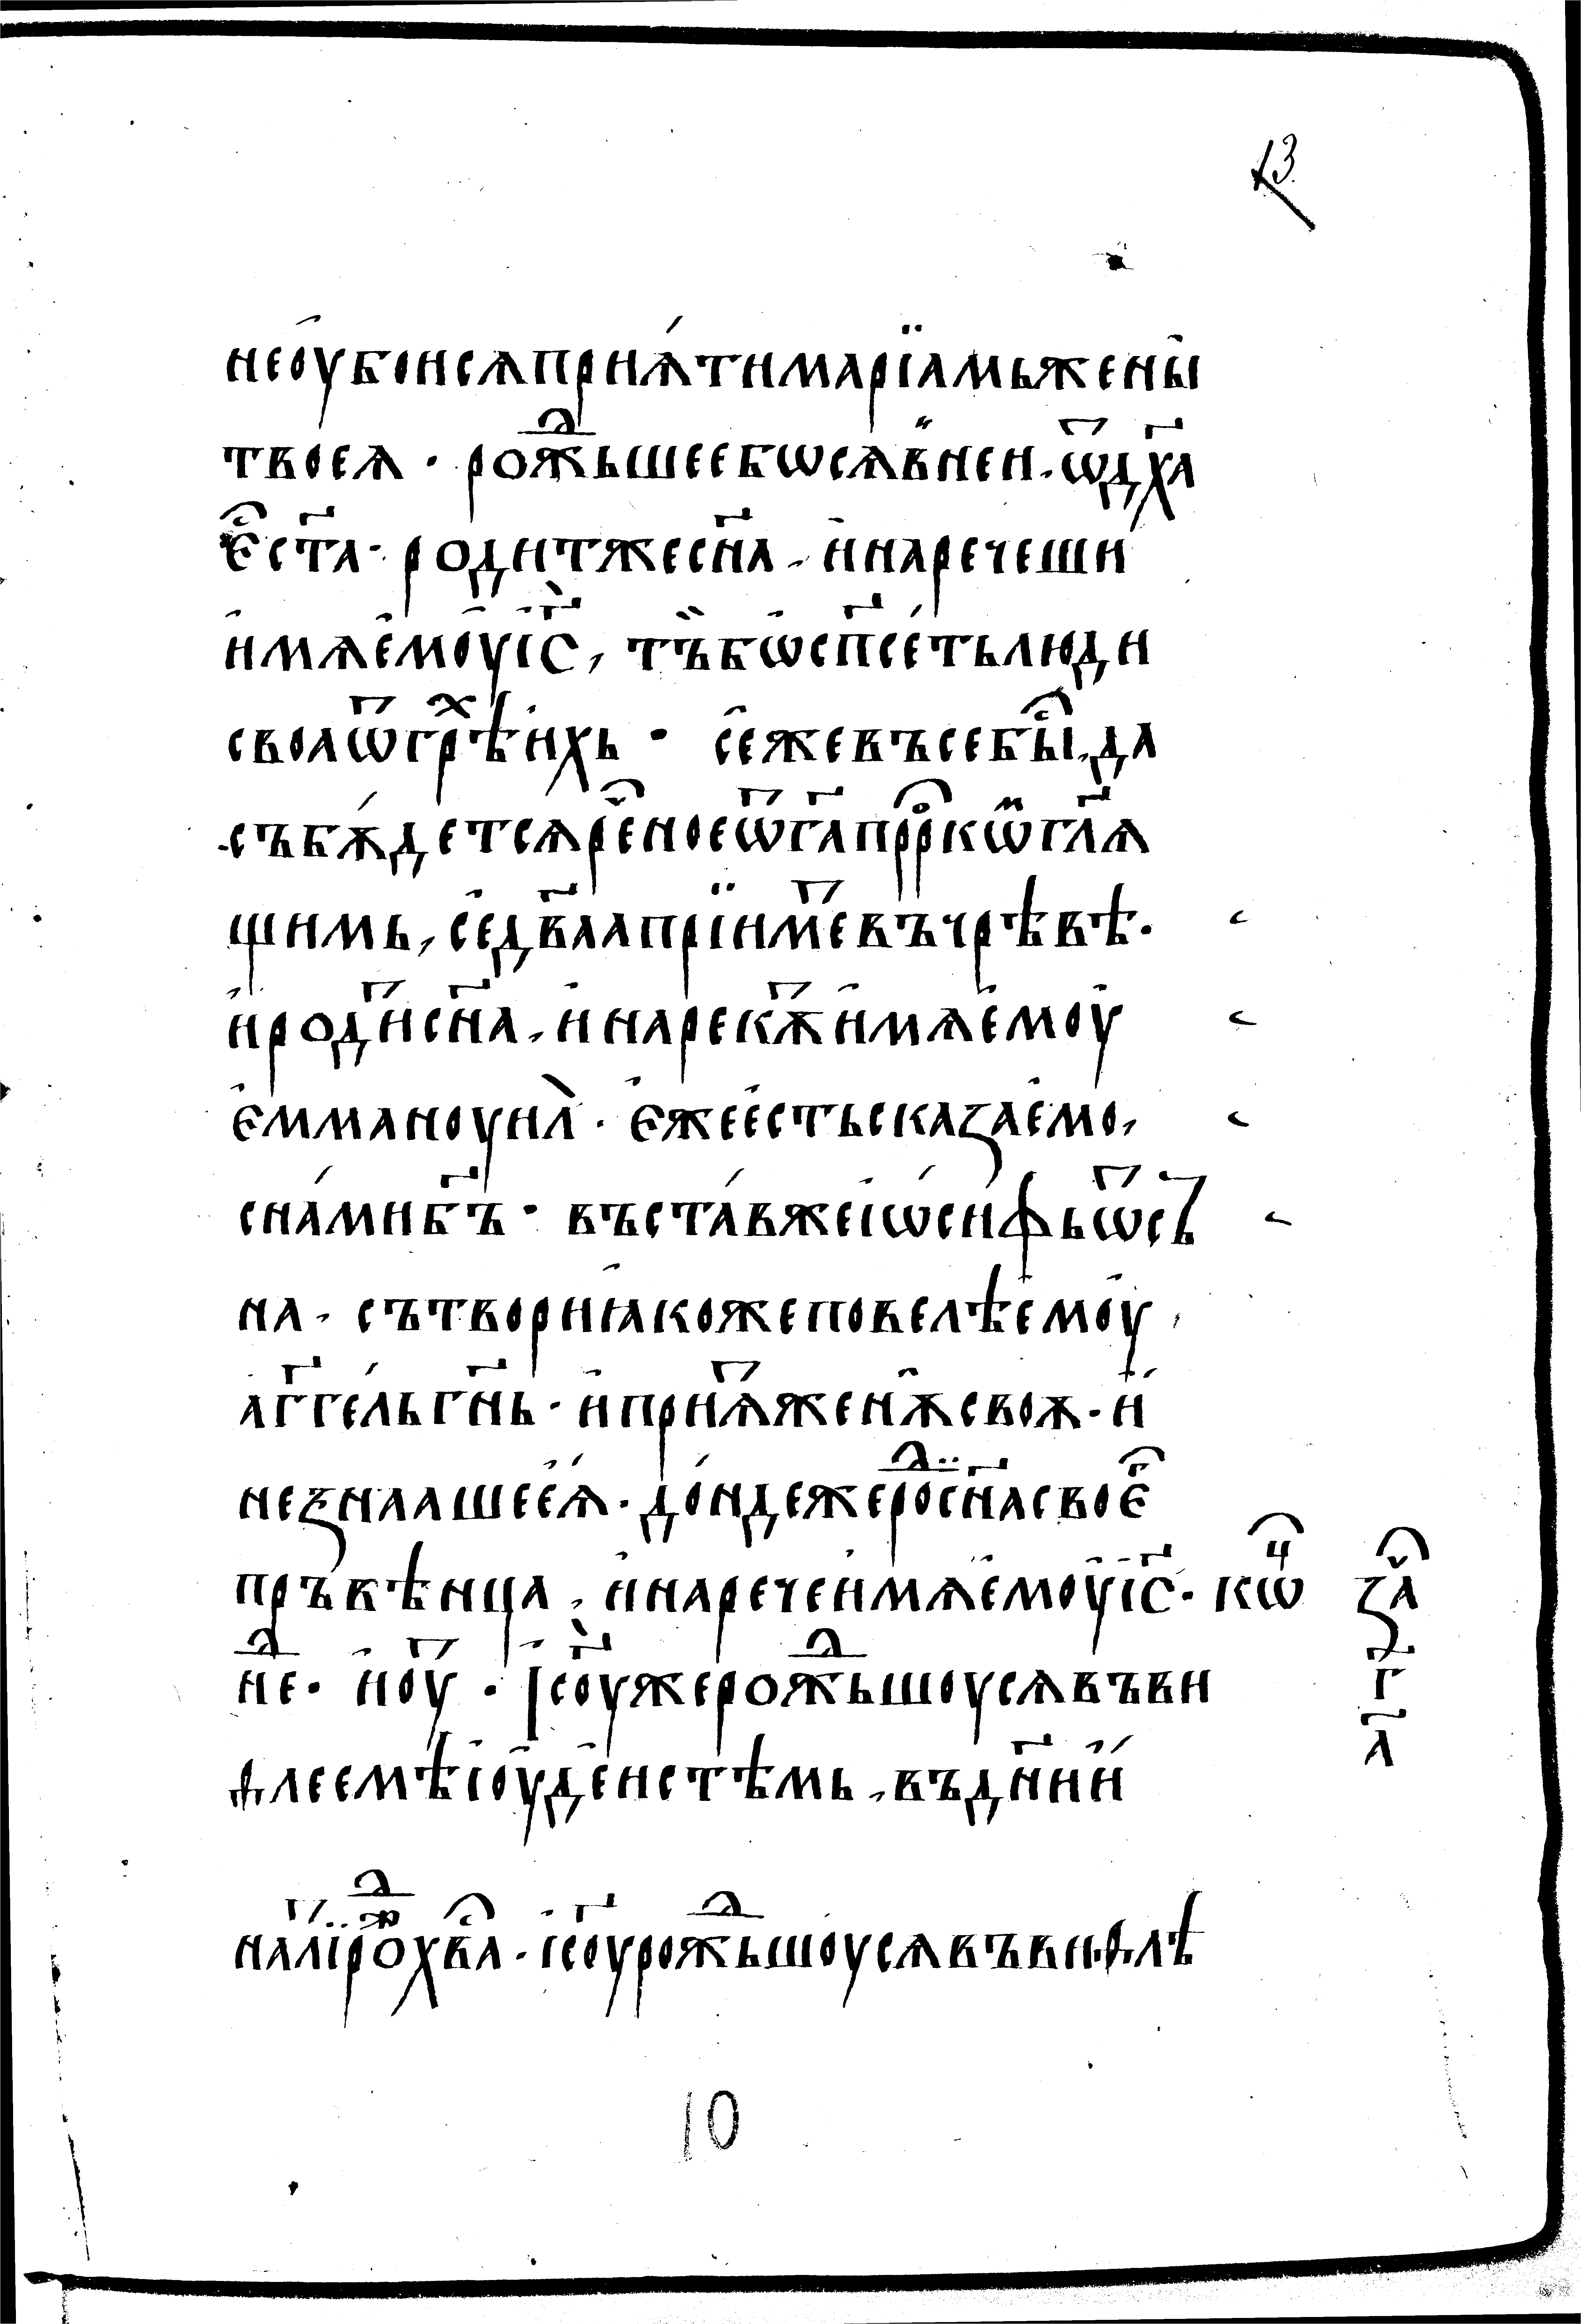 13
неоу҆боисѧприѧ́тимарїамьжены̑
твоеѧ · рожⷣьшеебѡсѧв̾неи · ѿдх҃а
єс҇ст҃а · родитжесн҃а , и҆наречеши
и҆мѧе҆моу҆і҆с҃ , тъ̏бѡ҆сп҃се́тьлюди
своаѿгрⷯѣ́и҆хь · се҆жевъсебыⷭ҇ , да
събѫ́детсѧреⷱ҇ноеѿг҃апррⷪ҇кѡ̑м̾гл҃ѧ
щимь , се҆дв҃аапрїимⷮевъчрѣвѣ ·
и҆родиⷮсн҃а , и҆нарекѫⷮи҆мѧе҆моу҆
є҆мманоуил̀ · є҆жее҆стьсказае҆мо ,
сна́мибг҃ъ · въста́вжеі҆ѡ҆си́фьѿсъ
на , сътвориꙗ҆кожеповелѣе҆моу҆ ,
а҆г҃ге́льгн҃ь · и҆приѧⷮженѫ̑своѫ · и҆
незнаашее҆ѧ̀ · до́ндежероⷣсн҃асвоєⷢ҇
пръвѣнца , и҆наречеи҆мѧе҆моу҆і҆с҃ · кѡⷰ҇
неⷣ · и҆оуⷮ · І҆со҃ужерожⷣьшоусѧвъви
ѳлеемѣі҆оу҆де҆истѣмь , въдн҃ии҆
заⷱ҇
г
л҃
налиⷮроⷤⷣхвⷭ҇а · і҆со҃урожⷣьшоусѧвъвиѳлѣ
10